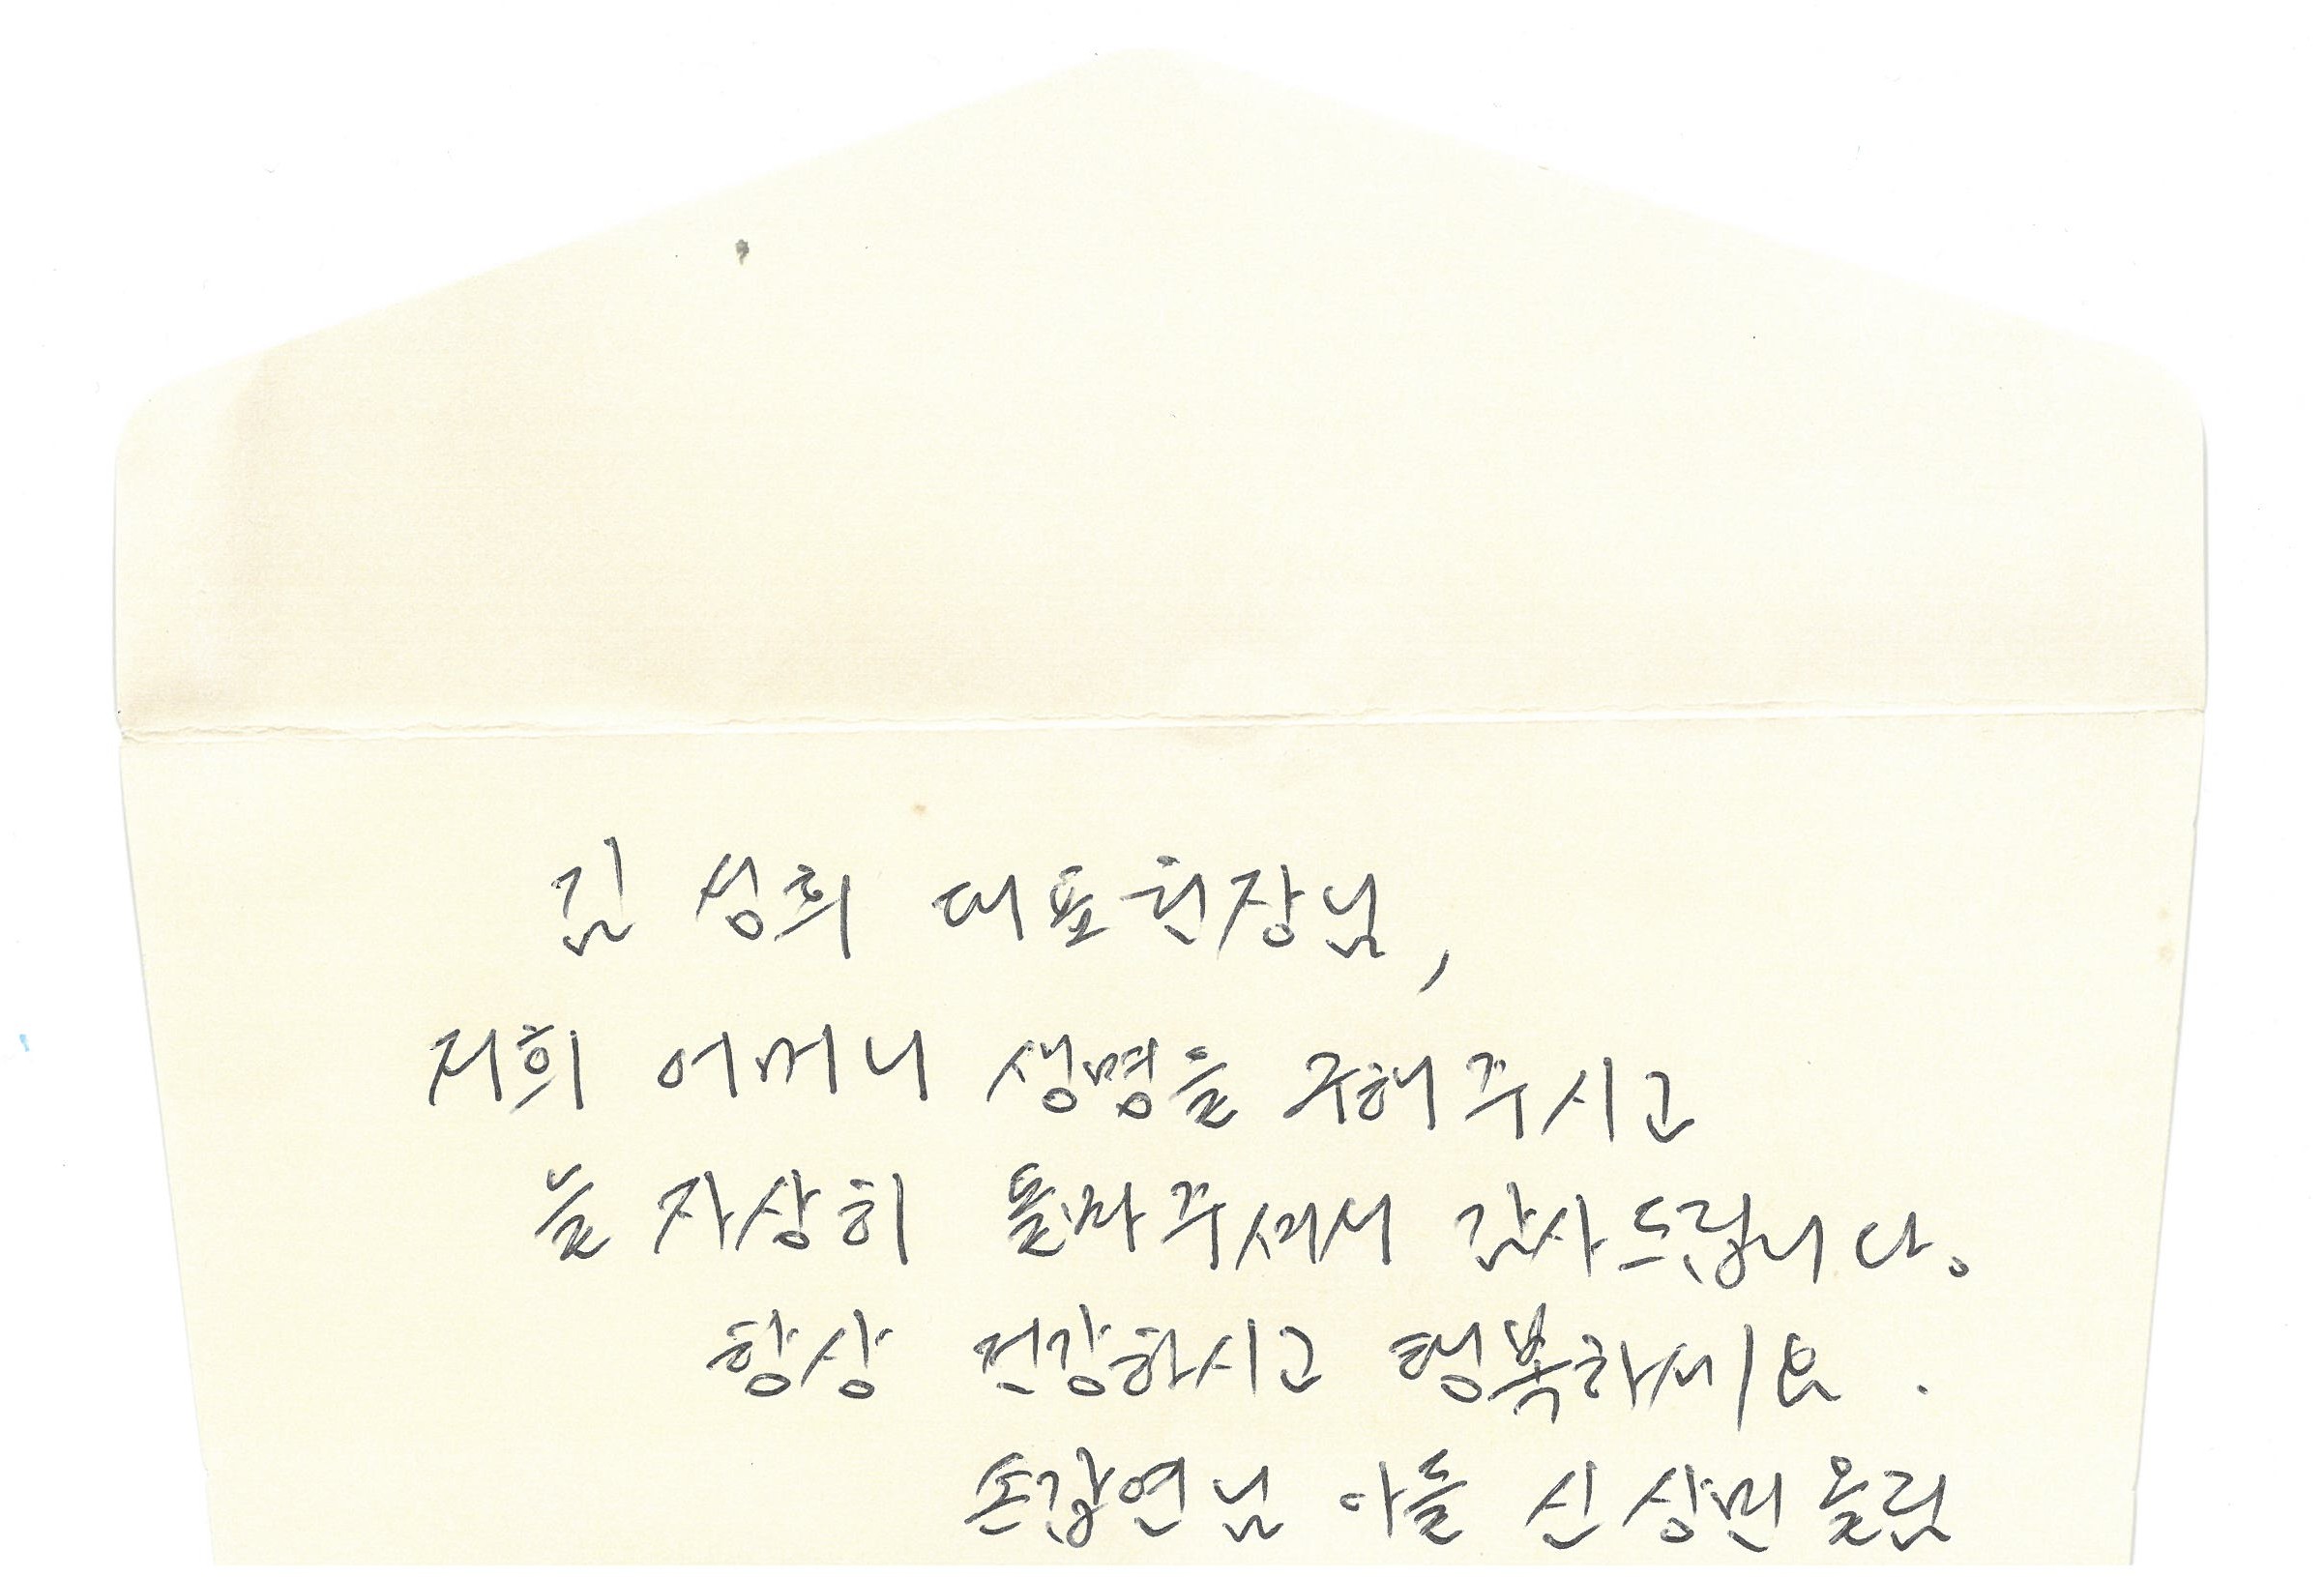 김성희 대표원장님,
저희 어머니 생명을 구해주시고
늘 자상히 돌봐주셔서 감사드립니다.
항상 건강하시고 행복하세요.
손갑연님 아들 신상민 올림